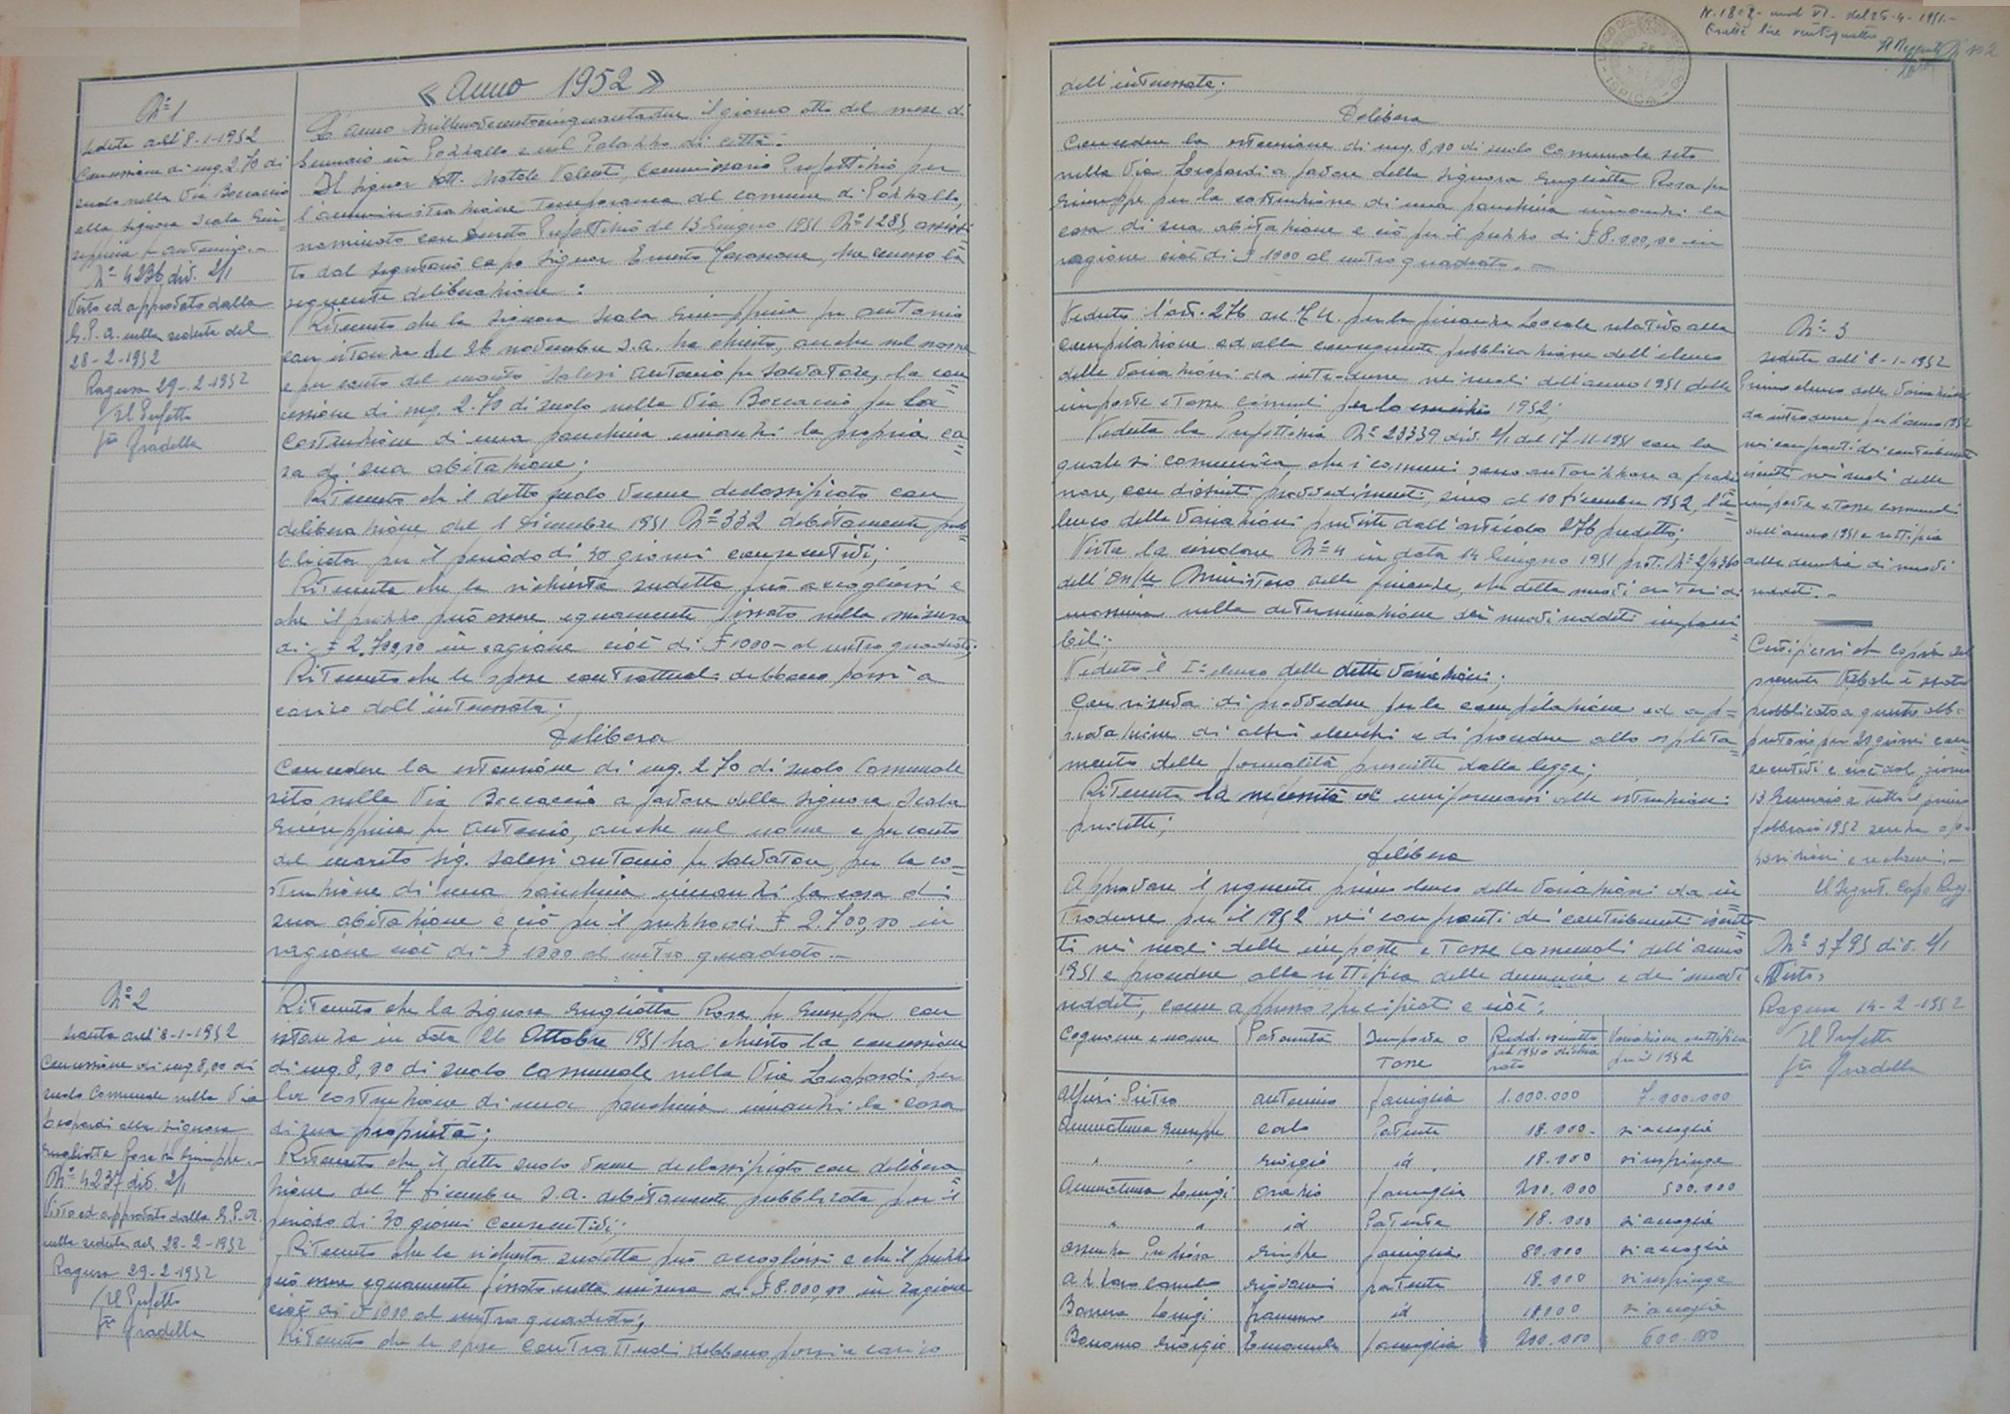 « Anno 1952 »
N° 1
seduta dell'8-1-1952
Concessione di mq. 2.70 di
suolo nella Via Boccaccio
alla signora Scala Giu=
seppina fu Antonio.-
N° 4236 div. 2/1
Visto ed approvato dalla
G.P.A. nella seduta del
28-2-1952
Ragusa 29-2-1952
Il Prefetto
fto Gradella
L'anno millenovecentocinquantadue il giorno otto del mese di
Gennaio in Pozzallo e nel Palazzo di città.
Il Signor Dott. Natale Valenti, Commissario Prefettizio per
l'amministrazione temporanea del comune di Pozzallo,
nominato con Decreto Prefettizio del 13 Giugno 1951 N° 1285, assisti=
to dal segretario capo Signor Ernesto, ha emesso la
seguente deliberazione:
Ritenuto che la signora Scala Giuseppina fu Antonio
con istanza del 26 novembre s.a. ha chiesto, anche nel nome
e per conto del marito Salesi Antonio fu Salvatore, la con=
cessione di mq. 2.70 di suolo nella Via Boccaccio per la
costruzione di una panchina innanzi la propria ca=
sa di sua abitazione;
Ritenuto che il detto suolo venne declassificato con
deliberazione del 1 Dicembre 1951 N° 332 debitamente pub=
blicata per il periodo di 30 giorni consecutivi;
Ritenuto che la richiesta sudetta può accogliersi e
che il prezzo può essere equamente fissato nella misura
di £ 2.700,00 in ragione cioè di £ 1000 al metro quadrato;
Ritenuto che le spese contrattuali debbano porsi a
carico dell'interessata;
Delibera
Concedere la estensione di mq. 2.70 di suolo Comunale
sito nella Via Boccaccio a favore della signora Scala
Giuseppina fu Antonio, anche nel nome e per conto
del marito Sig. Salesi Antonio fu Salvatore, per la co=
struzione di una panchina innanzi la casa di
sua abitazione e ciò per il prezzo di £ 2.700,00 in
ragione cioè di £ 1000 al metro quadrato.-
N° 2
seduta dell'8-1-1952
Concessione di mq 8,00 di
suolo Comunale nella Via
Leopardi alla signora
Gugliotta Rosa fu Giuseppe.-
N° 4237 div. 2/1
Visto ed approvato dalla G.P.A.
nella seduta del 28-2-1952
Ragusa 29-2-1952
Il Prefetto
fto Gradella
Ritenuto che la signora Gugliotta Rosa fu Giuseppe con
istanza in data 26 Ottobre 1951 ha chiesto la concessione
di mq. 8,00 di suolo Comunale nella Via Leopardi per
la costruzione di una panchina innanzi la casa
di sua proprietà;
Ritenuto che il detto suolo venne declassificato con delibera=
zione del 7 Dicembre s.a. debitamente pubblicata per il
periodo di 30 giorni consecutivi;
Ritenuto che la richiesta sudetta può accogliersi e che il prezzo
può essere equamente fissato nella misura di £ 8.000,00 in ragione
cioè di £ 1000 al metro quadrato;
Ritenuto che le spese contrattuali debbano porsi a carico
N. 1808 mod VI. del 26-4-1951.-
Esatte lire ventiquattro
dell'interessata;
Delibera
Concedere la estensione di mq. 8,00 di suolo Comunale sito
nella Via Leopardi a favore della signora Gugliotta Rosa fu
Giuseppe per la costruzione di una panchina innanzi la
casa di sua abitazione e ciò per il prezzo di £ 8.000,00 in
ragione cioè di £ 1000 al metro quadrato.-
Veduto l'art. 276 del T.U. per la finanza Locale relativo alla
compilazione ed alla conseguente pubblicazione dell'elenco
delle variazioni da introdurre nei ruoli dell'anno 1951 delle
imposte e tasse comunali per lo esercizio 1952;
Veduta la Prefettizia N° 23339 div. 2/1 del 17-11-1951 con la
quale si comunica che i comuni sono autorizzare a
con distinti provvedimenti, sino al 10 Dicembre 1952, l'e=
lenco delle variazioni previste dall'articolo 276 predetto;
Vista la circolare N° 4 in data 14 Giugno 1951 prot. N° 2/4360
dell'On/le Ministero delle finanze, che detta nuovi criteri di
massima nella determinazione dei nuovi redditi imponi=
bili;
Veduto il I° elenco delle dette variazioni;
Con riserva di provvedere per la compilazione ed ap=
provazione di altri elenchi e di procedere allo espleta=
mento delle formalità prescritte dalla legge;
Ritenuta la necessità di uniformarsi alle istruzioni
predette;
Delibera
Approvare il seguente primo elenco delle variazioni da in=
trodurre per il 1952 nei confronti dei contribuenti iscrit=
ti nei ruoli delle imposte e tasse comunali dell'anno
1951 e procedere alla rettifica delle denuncie e dei nuovi
redditi, come appresso specificati e cioè:
N° 3
seduta dell'8-1-1952
Primo elenco delle variazioni
da introdurre per l'anno 1952
nei confronti dei contribuenti
iscritti nei ruoli delle
imposte e tasse comunali
dell'anno 1951 e rettifica
delle denuncie di nuovi
redditi.-
Certificasi che copia del
presente verbale è stata
pubblicata a questo albo
pretorio per 20 giorni con=
secutivi e cioè dal giorno
13 Gennaio a tutto il primo
febbraio 1952 senza oppo=
sizioni e reclami.-
Il Segret. Capo
N° 3793 div. 2/1
Visto:
Ragusa 14-2-1952
Il Prefetto
fto Gradella
Cognome e nome Paternità Imposta o Tassa Redd. iscritto pel 1951 o dichiarato Variazione o rettifica per il 1952
Alfieri Pietro Antonino famiglia 1.000.000 7.000.000
Ammatuna Giuseppe Carlo Patente 18.000 si accoglie
" " Giorgio id 18.000 si respinge
Ammatuna Luigi Orazio famiglia 200.000 500.000
" " id Patente 18.000 si accoglie
Assenza Giuseppe famiglia 80.000 si accoglie
Azzaro Carmelo Giovanni patente 18.000 si respinge
Barrera Luigi id 18000 si accoglie
Bonomo Giorgio Emanuele famiglia 200.000 600.000